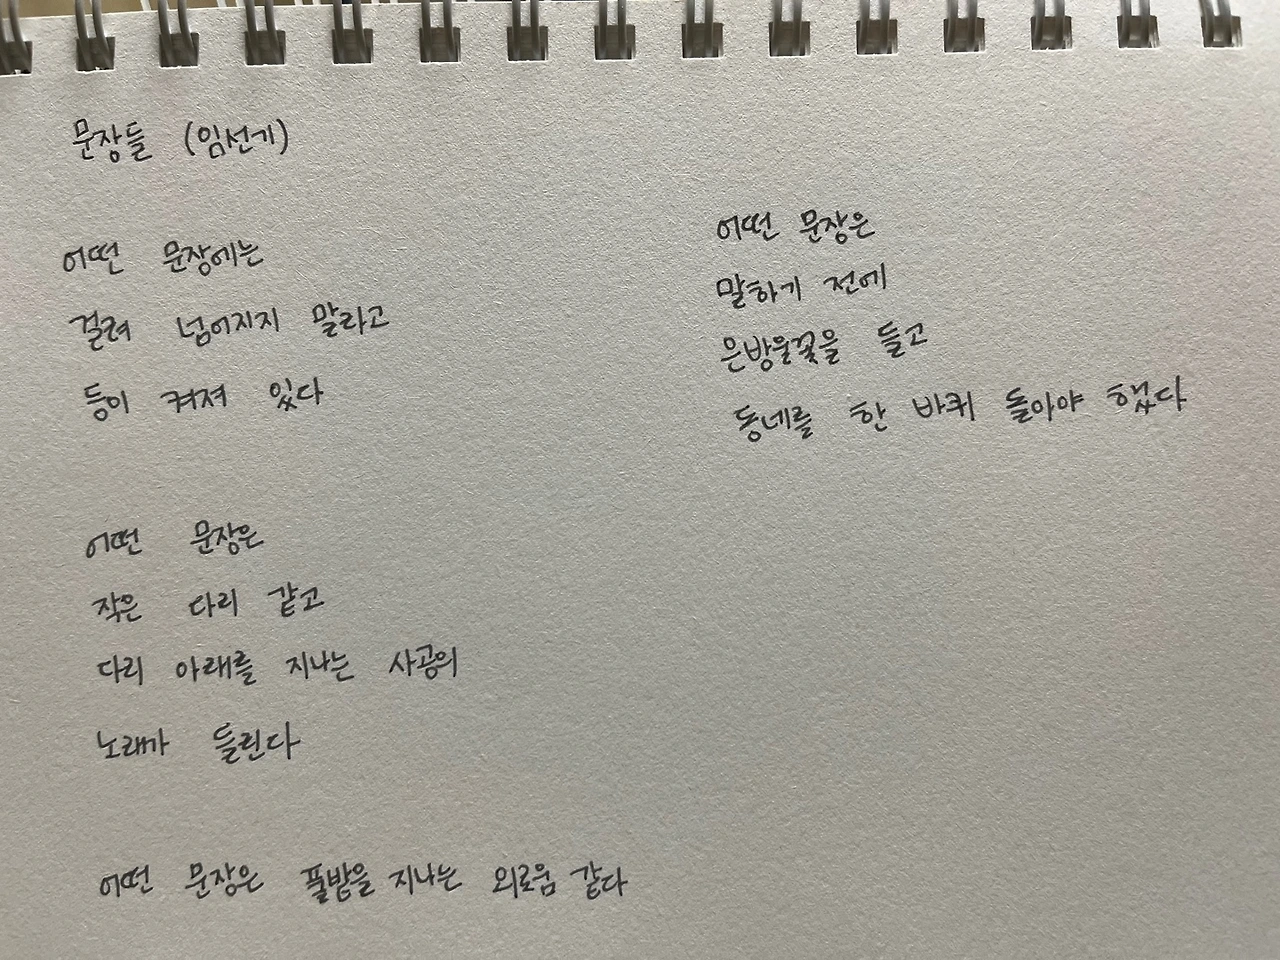 문장들 (임선기)
어떤 문장에는
걸려 넘어지지 말라고
등이 켜져 있다
어떤 문장은
작은 다리 같고
다리 아래를 지나는 사공의
노래가 들린다
어떤 문장은 풀밭을 지나는 외로움 같다
어떤 문장은
말하기 전에
은방울꽃을 들고
동네를 한 바퀴 돌아야 했다